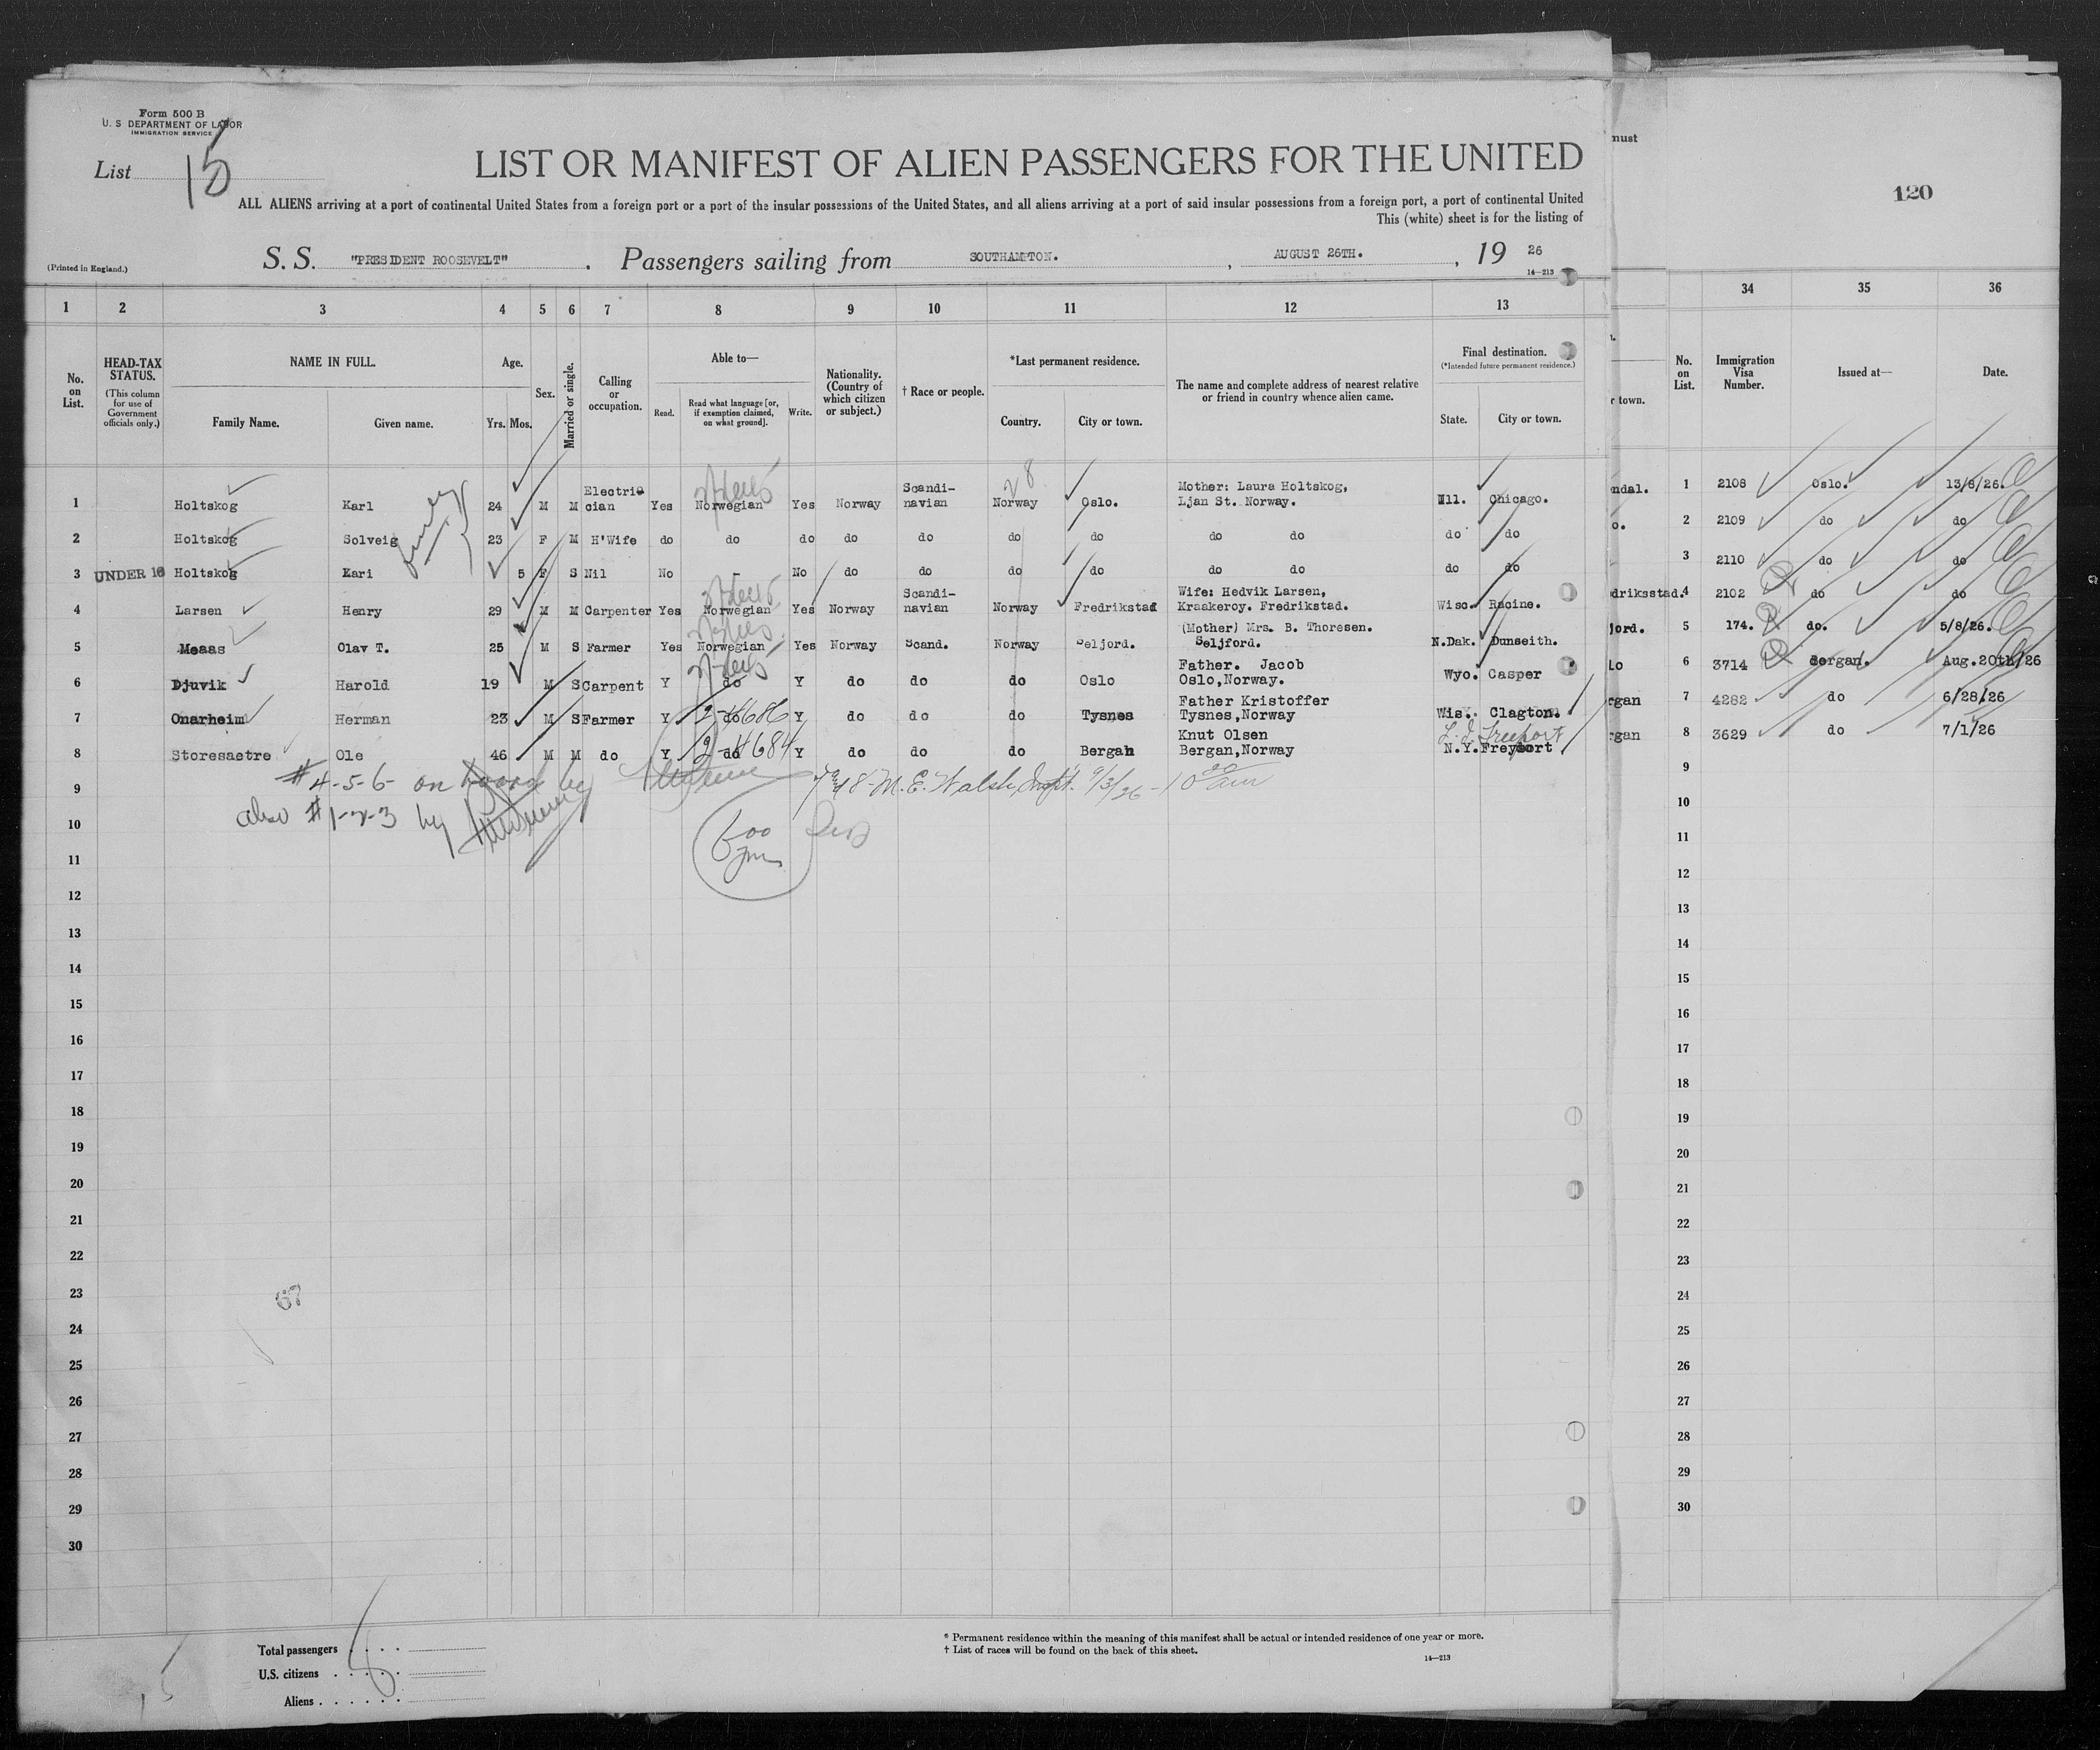 Form 500 B
U. S DEPARTMENT OF LABOR
IMMIGRATION SERVICE
List 15
LIST OR MANIFEST OF ALIEN PASSENGERS FOR THE UNITED
ALL ALIENS arriving at a port of continental United States from a foreign port or a port of the insular possessions of the United States, and all aliens arriving at a port of said insular possessions from a foreign port, a port of continental United
This (white) sheet is for the listing of
(Printed in England.)
S. S. "PRESIDENT ROOSEVELT" . Passengers sailing from SOUTHAMPTON. , AUGUST 26TH. , 19 26
14—213
must
120
1 2 3 4 5 6 7 8 9 10 11 12 13 34 35 36
No. on List.
HEAD-TAX STATUS.
(This column for use of Government officials only.)
NAME IN FULL.
Family Name. Given name.
Age.
Yrs. Mos.
Sex.
Married or single.
Calling or occupation.
Able to—
Read. Read what language [or, if exemption claimed, on what ground]. Write.
Nationality. (Country of which citizen or subject.)
† Race or people.
*Last permanent residence.
Country. City or town.
The name and complete address of nearest relative or friend in country whence alien came.
Final destination.
(*Intended future permanent residence.)
State. City or town.
r town.
No. on List.
Immigration Visa Number.
Issued at—
Date.
1 Holtskog Karl 24 M M Electrician Yes Norwegian Yes Norway Scandi-navian Norway Oslo. Mother: Laura Holtskog, Ljan St. Norway. Ill. Chicago. ndal. 1 2108 Oslo. 13/8/26.
2 Holtskog Solveig 23 F M H'Wife do do do do do do do do do do do o. 2 2109 do do
3 UNDER 16 Holtskog Kari 5 F S Nil No - No do do do do do do do do 3 2110 do do
4 Larsen Henry 29 M M Carpenter Yes Norwegian Yes Norway Scandi-navian Norway Fredrikstad Wife: Hedvik Larsen, Kraakeroy. Fredrikstad. Wisc. Racine. driksstad. 4 2102 do do
5 Meaas Olav T. 25 M S Farmer Yes Norwegian Yes Norway Scand. Norway Seljord. (Mother) Mrs. B. Thoresen. Seljford. N.Dak. Dunseith. jord. 5 174. do. 5/8/26.
6 Djuvik Harold 19 M S Carpent Y do Y do do do Oslo Father. Jacob Oslo,Norway. Wyo. Casper lo 6 3714 Bergan. Aug.20th/26
7 Onarheim Herman 23 M S Farmer Y do 2-4686 Y do do do Tysnes Father Kristoffer Tysnes,Norway Wis. Clagton. rgan 7 4282 do 6/28/26
8 Storesaetre Ole 46 M M do Y do 2-4684 Y do do do Bergan Knut Olsen Bergan,Norway L.I. Freeport N.Y. Freyport rgan 8 3629 do 7/1/26
# 4-5-6- on board by
7 and 8- M. E. Walsh, Inspt. 9/3/26 - 10 20 am
also #1-2-3 by
9 9
10 10
11 11
12 12
13 13
14 14
15 15
16 16
17 17
18 18
19 19
20 20
21 21
22 22
23 67 23
24 24
25 25
26 26
27 27
28 28
29 29
30 30
Total passengers . . . .
U.S. citizens . . . . .
Aliens . . . . . .
8
* Permanent residence within the meaning of this manifest shall be actual or intended residence of one year or more.
† List of races will be found on the back of this sheet.
14—213